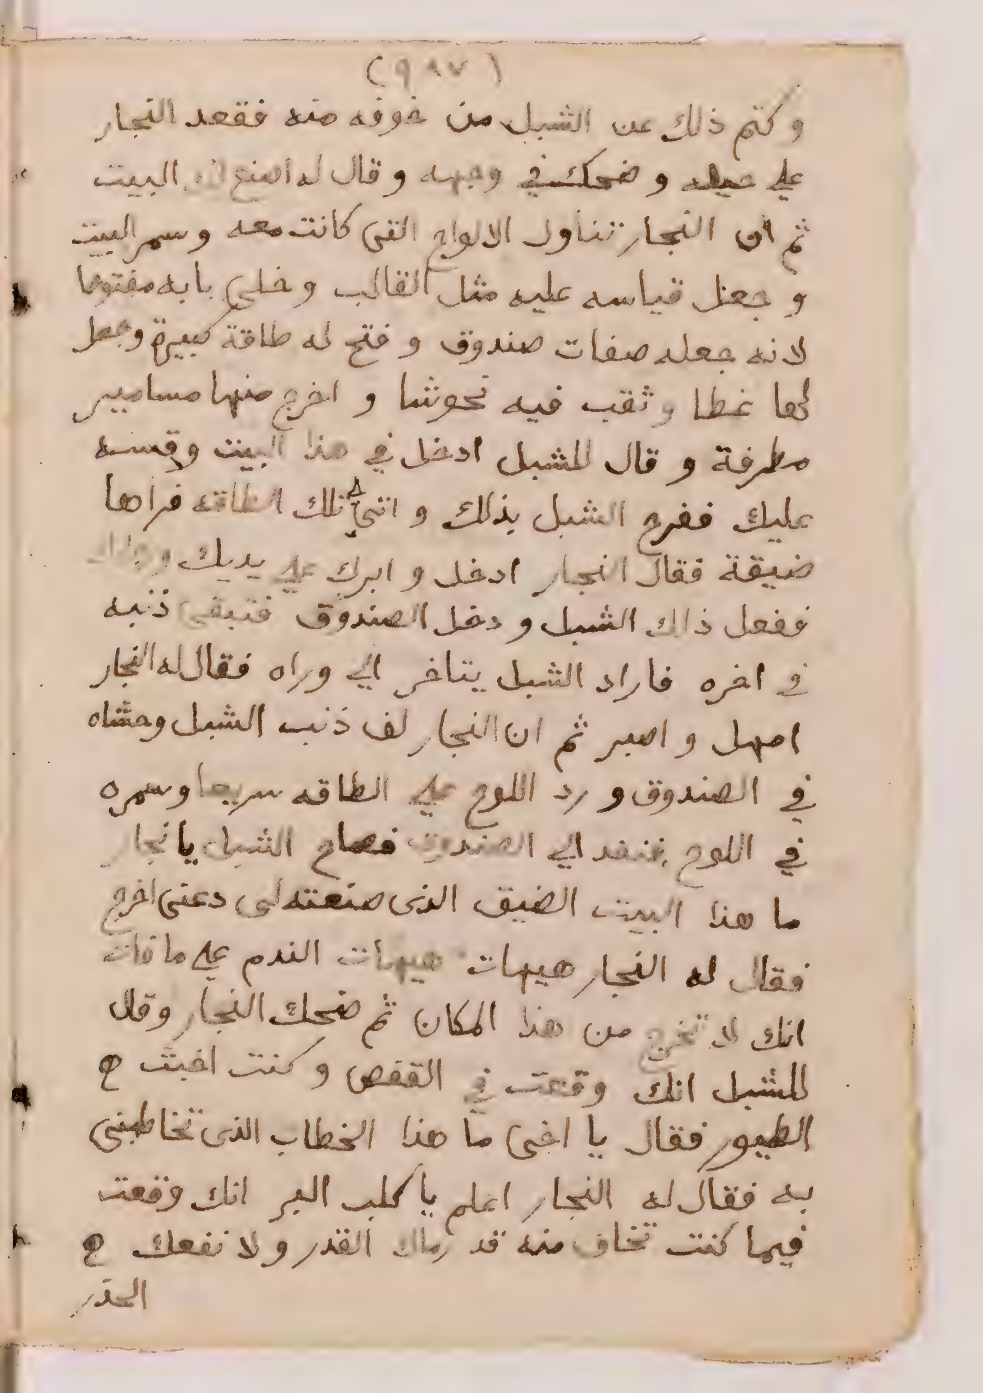 (٩٨٧)
وكتم ذلك عن الشبل من خوفه منه فقعد النجار
علي حيله وضحك في وجهه وقال له اصنع لك البيت
ثم ان النجار تناول الالواح التي كانت معه وسمر البيت
وجعل قياسه عليه مثل القالب وخلي بابه مفتوحا
لانه جعله صفات صندوق وفتح له طاقة كبيرة وجعل
لها غطا وثقب فيه نحوشا واخرج منها مسامير
مطرفة وقال للشبل ادخل في هذا البيت وقسه
عليك ففرح الشبل بذلك واتي تلك الطاقه فراها
ضيقة فقال النجار ادخل وابرك علي يديك
ففعل ذلك الشبل ودخل الصندوق فتبقي ذنبه
في اخره فاراد الشبل يتاخر الي وراه فقال له النجار
امهل واصبر ثم ان النجار لف ذنب الشبل وحشاه
في الصندوق ورد اللوح علي الطاقه سريعا وسمره
في اللوح فنفد الي الصندوق فصاح الشبل يا نجار
ما هذا البيت الضيق الذى صنعته لي دعني اخرج
فقال له النجار هيهات هيهات الندم علي ما فات
انك لا تخرج من هذا المكان ثم ضحك النجار وقال
للشبل انك وقعت في القفص وكنت اخبث ح
الطيور فقال يا اخي ما هذا الخطاب الذى تخاطبني
به فقال له النجار اعلم يا كلب البر انك وقعت
فيما كنت تخاف منه قد رماك القدر ولا نفعك ح
الحذر